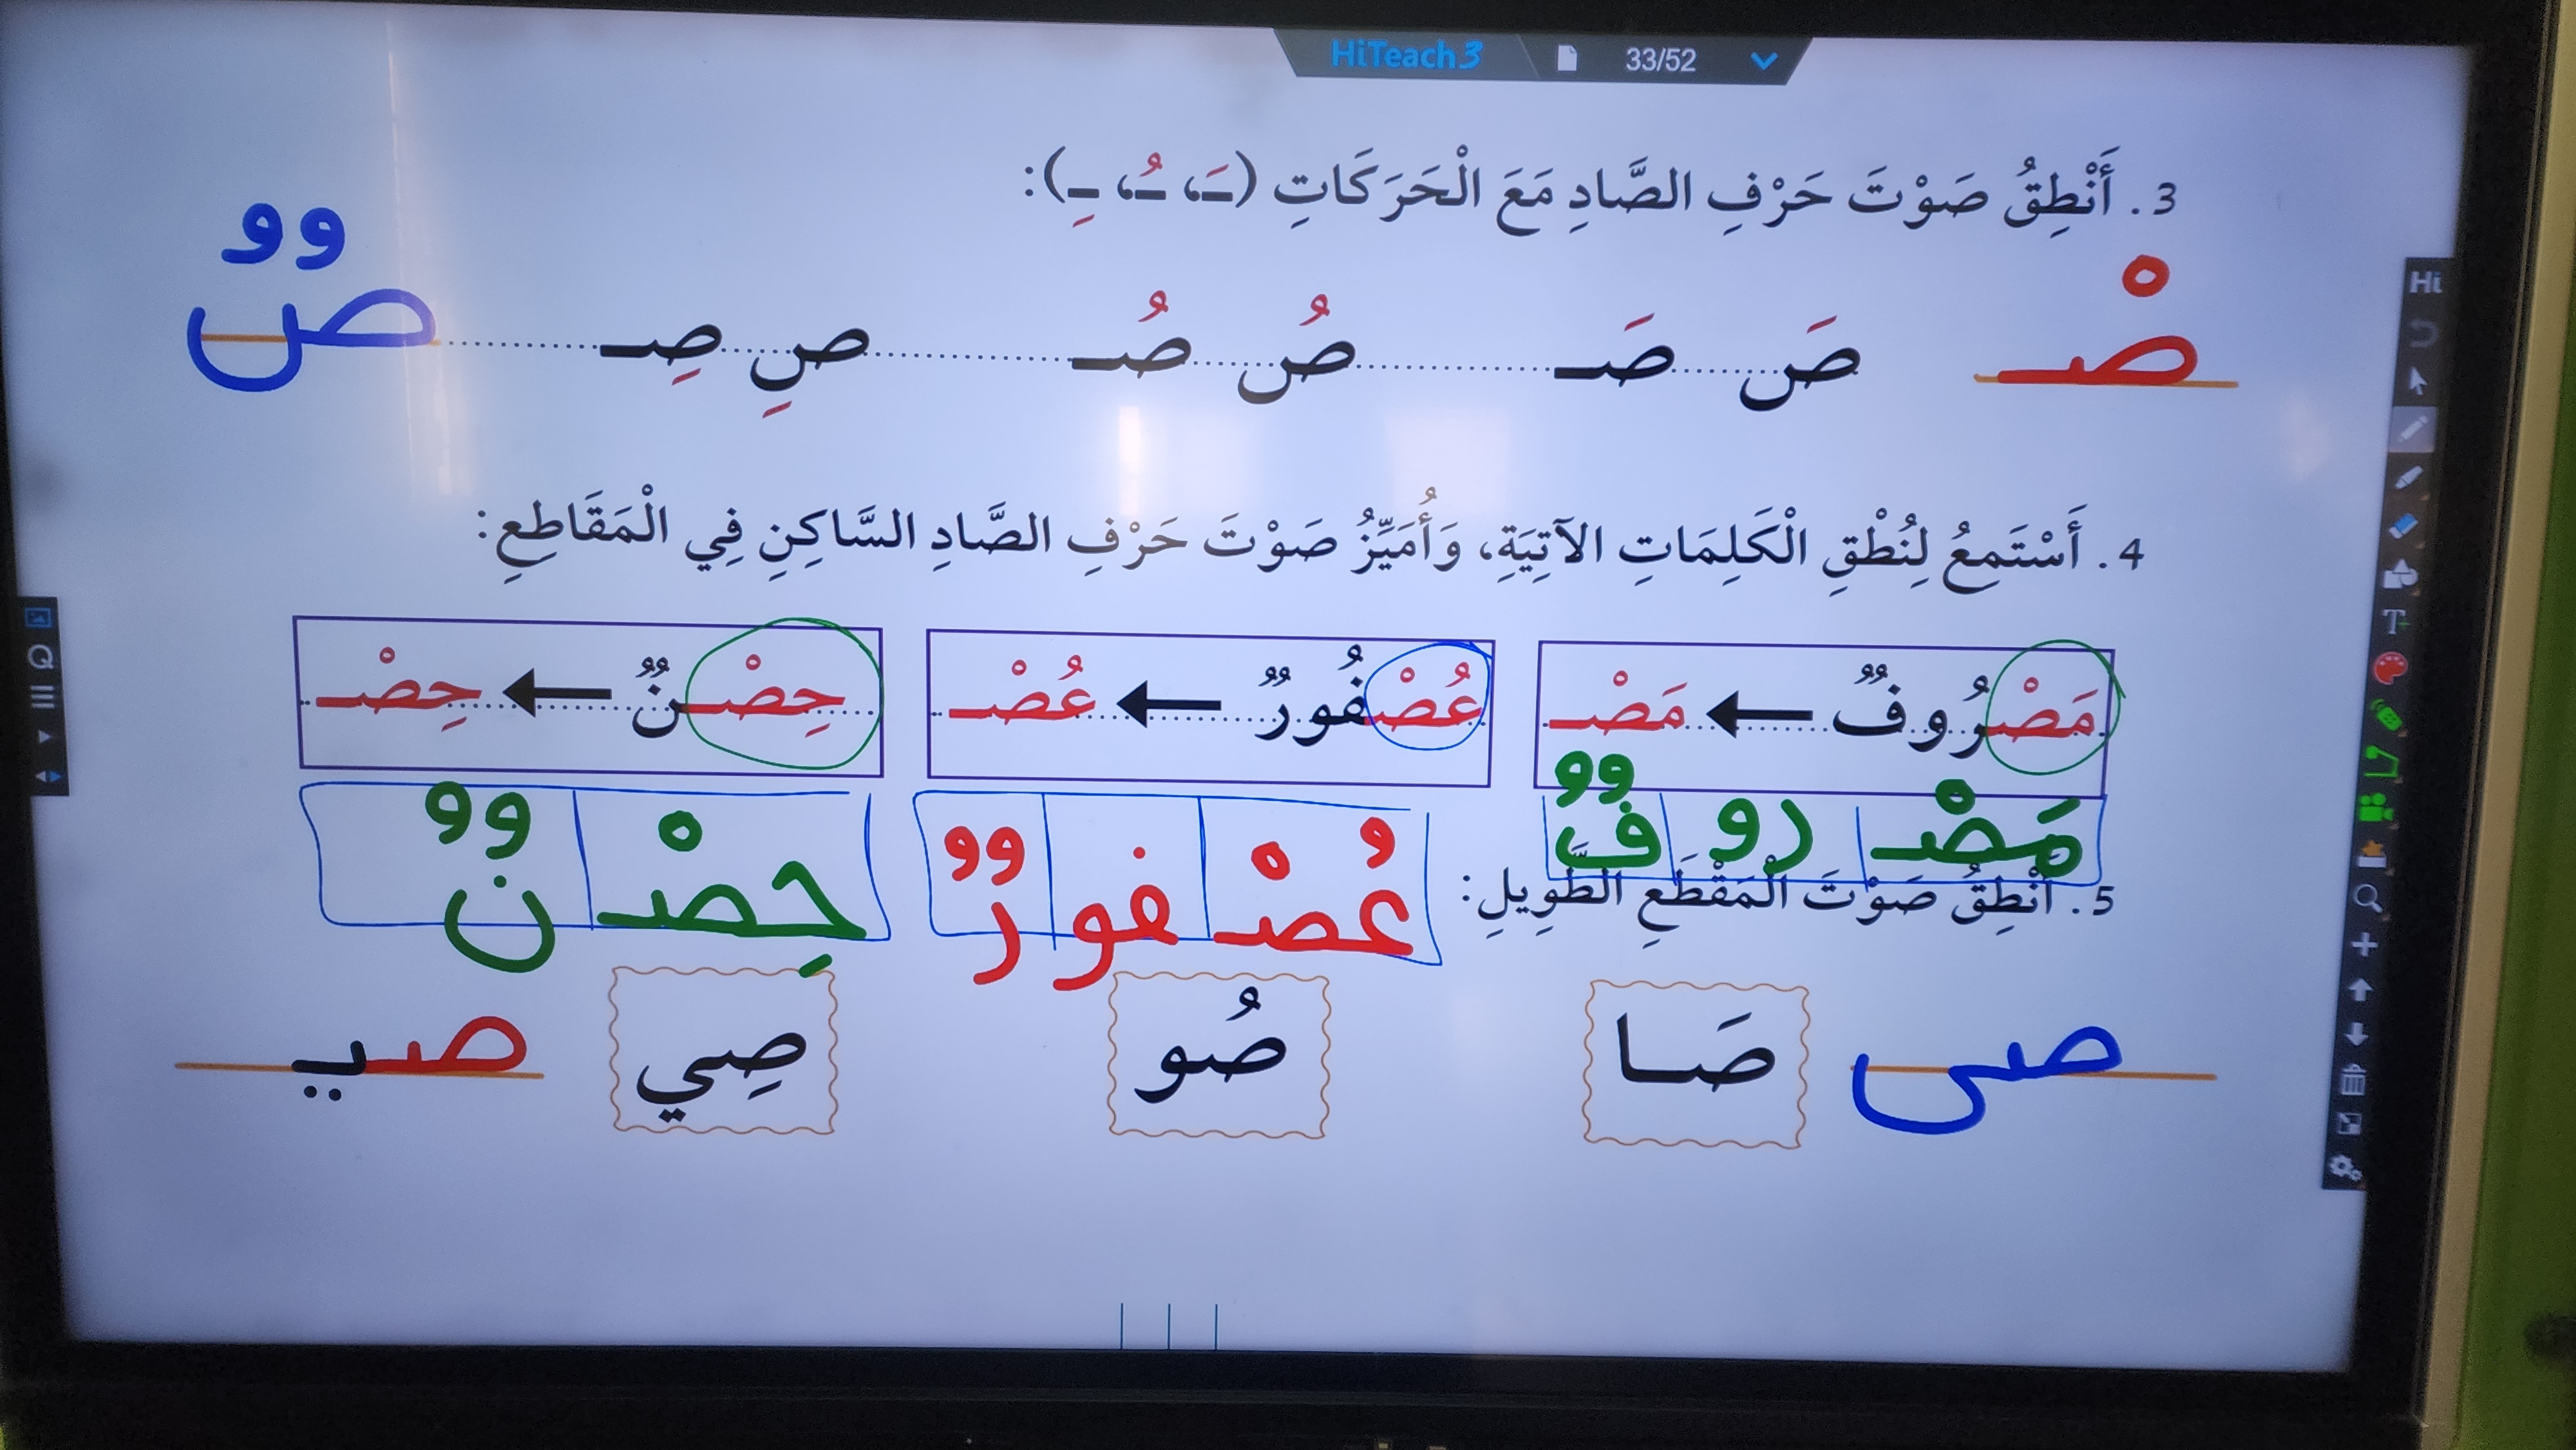 HiTeach3 33/52
3. أَنْطِقُ صَوْتَ حَرْفِ الصَّادِ مَعَ الْحَرَكَاتِ (ـَ، ـُ، ـِ):
صْـ صَ صَـ صُ صُـ صِ صِـ صٌ
4. أَسْتَمِعُ لِنُطْقِ الْكَلِمَاتِ الآتِيَةِ، وَأُمَيِّزُ صَوْتَ حَرْفِ الصَّادِ السَّاكِنِ فِي الْمَقَاطِعِ:
مَصْرُوفٌ ← مَصْـ عُصْفُورٌ ← عُصْـ حِصْنٌ ← حِصْـ
مَصْـ رو فٌ عُصْـ فو رٌ حِصْـ نٌ
5. أَنْطِقُ صَوْتَ الْمَقْطَعِ الطَّوِيلِ:
صى صَـا صُو صِي صيـ
Hi
T
Q